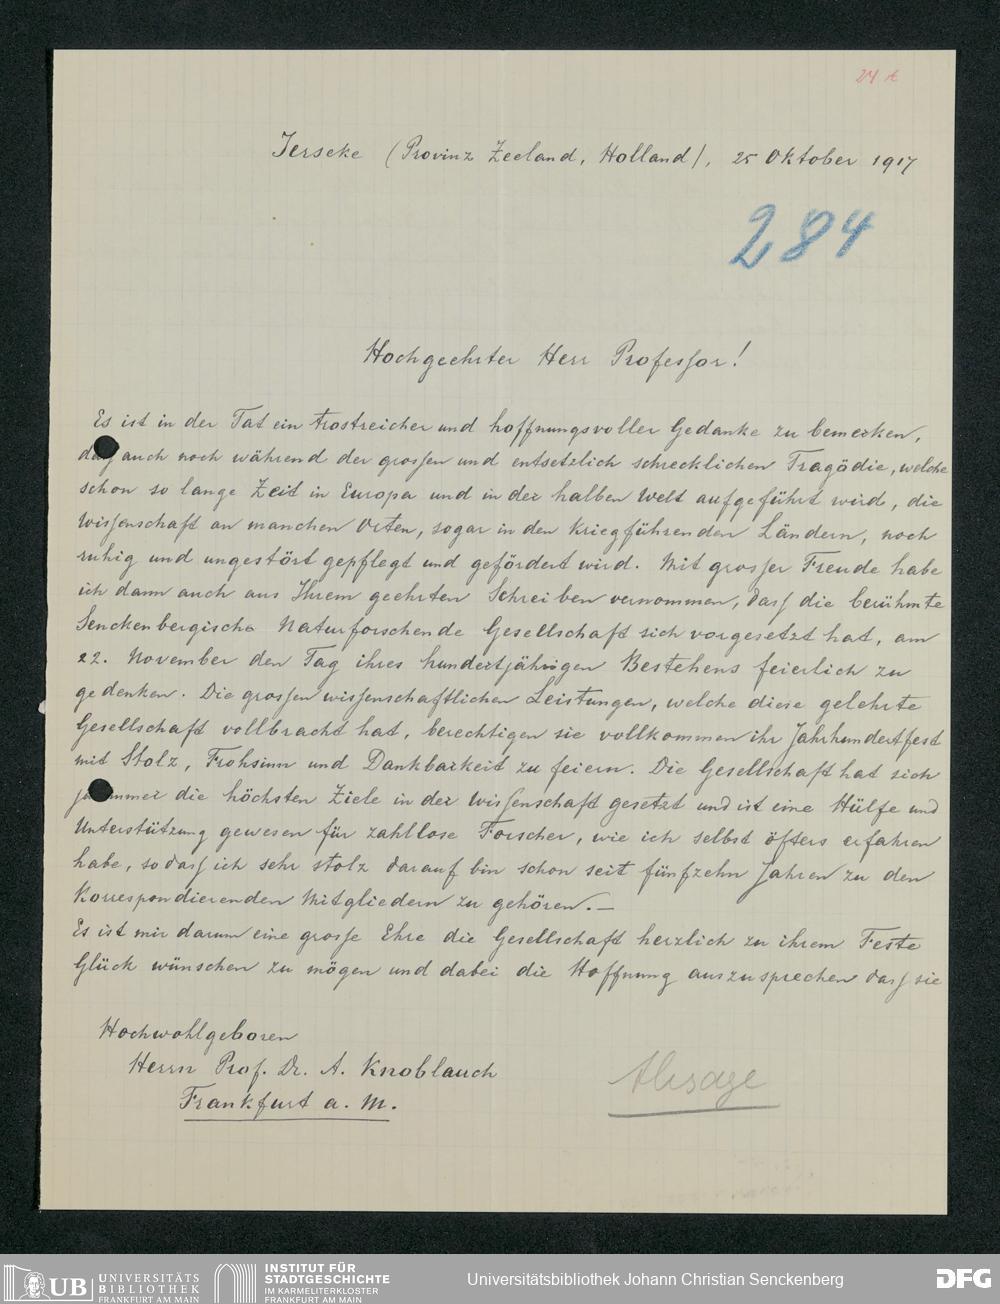 24 A
Ierseke (Provinz Zeeland, Holland), 25 Oktober 1917
284
Hochgeehrter Herr Professor!
Es ist in der Tat ein trostreicher und hoffnungsvoller Gedanke zu bemerken,
daß auch noch während der grossen und entsetzlich schrecklichen Tragödie, welche
schon so lange Zeit in Europa und in der halben Welt aufgeführt wird, die
Wissenschaft an manchen Orten, sogar in den kriegführenden Ländern, noch
ruhig und ungestört gepflegt und gefördert wird. Mit grosser Freude habe
ich dann auch aus Ihrem geehrten Schreiben vernommen, dass die berühmte
Senckenbergische Naturforschende Gesellschaft sich vorgesetzt hat, am
22. November den Tag ihres hundertjährigen Bestehens feierlich zu
gedenken. Die grossen wissenschaftlichen Leistungen, welche diese gelehrte
Gesellschaft vollbracht hat, berechtigen sie vollkommen ihr Jahrhundertfest
mit Stolz, Frohsinn und Dankbarkeit zu feiern. Die Gesellschaft hat sich
ja immer die höchsten Ziele in der Wissenschaft gesetzt und ist eine Hülfe und
Unterstützung gewesen für zahllose Forscher, wie ich selbst öfters erfahren
habe, so dass ich sehr stolz darauf bin schon seit fünfzehn Jahren zu den
Korrespondierenden Mitgliedern zu gehören.—
Es ist mir darum eine grosse Ehre die Gesellschaft herzlich zu ihrem Feste
Glück wünschen zu mögen und dabei die Hoffnung auszusprechen dass sie
Hochwohlgeboren
Herrn Prof. Dr. A. Knoblauch
Frankfurt a. M.
Absage
UB UNIVERSITÄTS
BIBLIOTHEK
FRANKFURT AM MAIN
INSTITUT FÜR
STADTGESCHICHTE
IM KARMELITERKLOSTER
FRANKFURT AM MAIN
Universitätsbibliothek Johann Christian Senckenberg
DFG